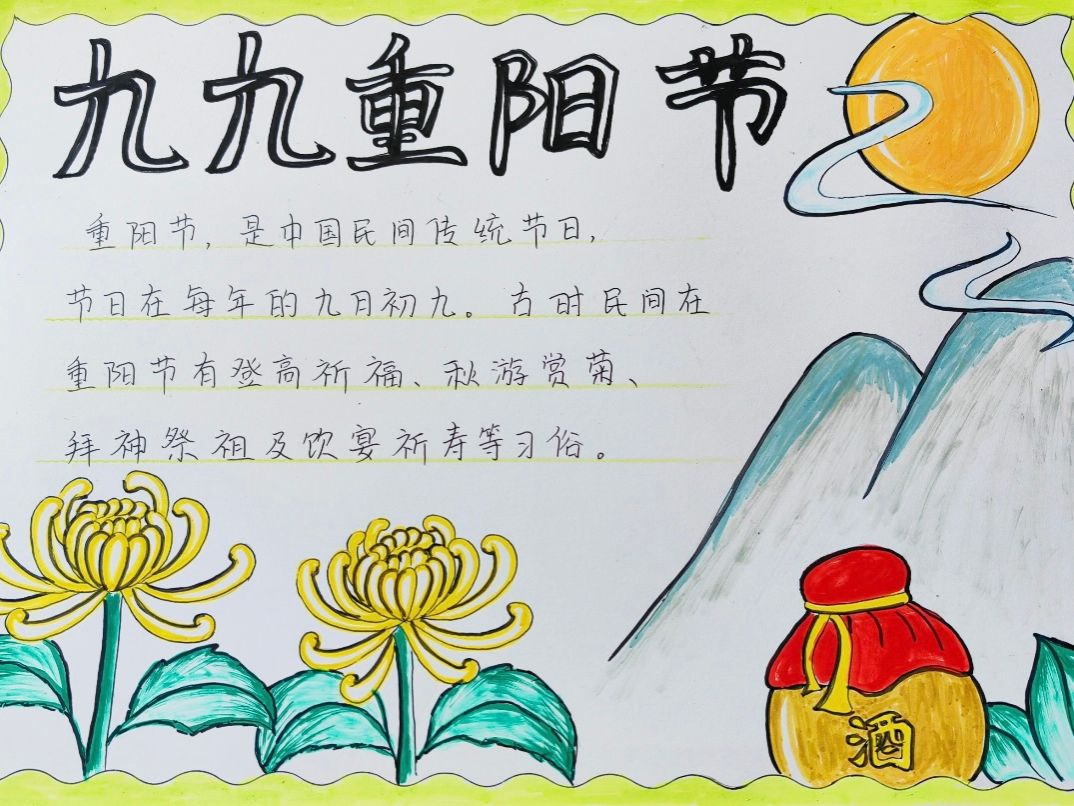 九九重阳节
重阳节,是中国民间传统节日,
节日在每年的九月初九。古时民间在
重阳节有登高祈福、秋游赏菊、
拜神祭祖及饮宴祈寿等习俗。
酒